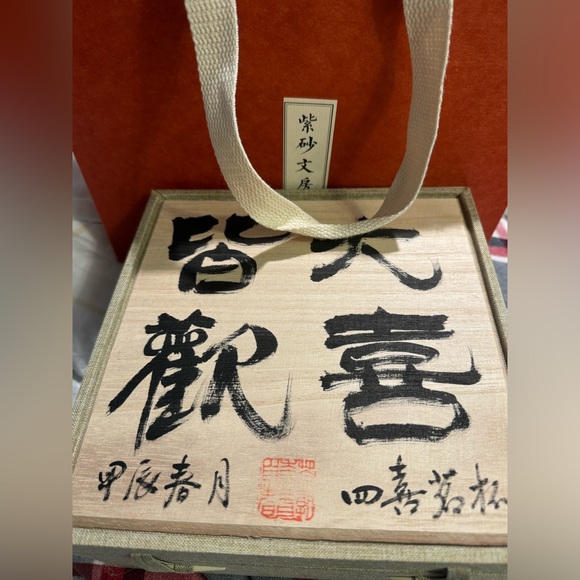 紫砂文房
大喜
皆歡
四喜茗杯
甲辰春月